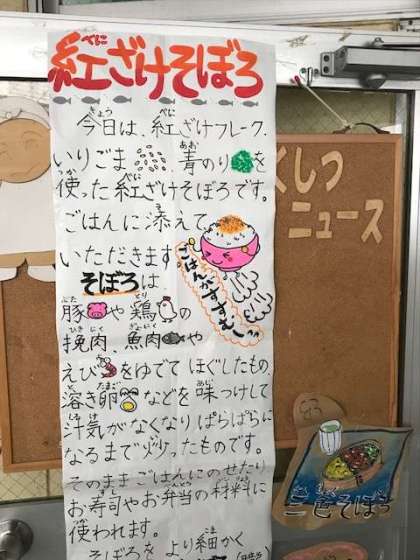 紅ざけそぼろ
べに
今日は、紅ざけフレーク、
いりごま、青のりを
使った紅ざけそぼろです。
ごはんに添えて
いただきます。
ごはんがすすむ〜
そぼろは、
豚や鶏の
挽肉、魚肉や
えびをゆでてほぐしたもの、
溶き卵などを味つけして
汁気がなくなりぱらぱらに
なるまで炒ったものです。
そのままごはんにのせたり
お寿司やお弁当の材料に
使われます。
そぼろを、より細かく
くしつ
ニュース
三色そぼろ